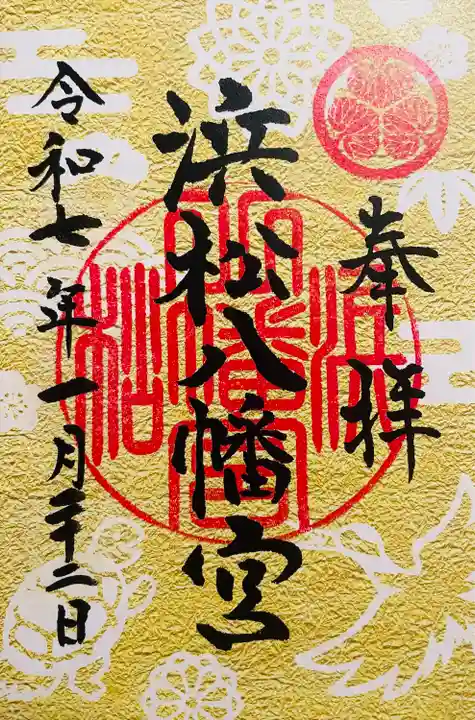 奉拝
浜松八幡宮
令和七年一月二十二日